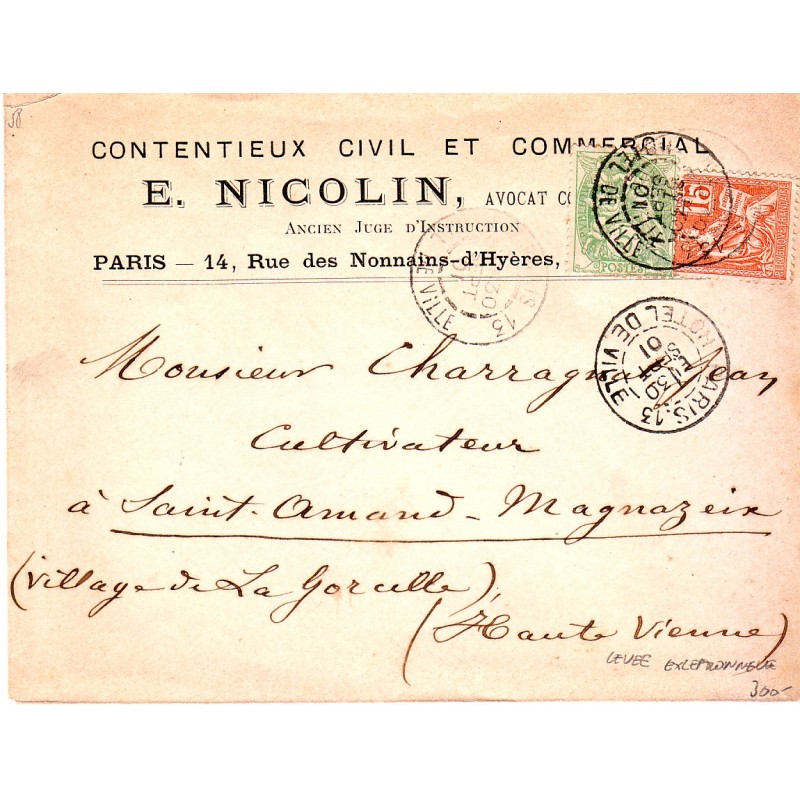 58
CONTENTIEUX CIVIL ET COMMERCIAL
E. NICOLIN, AVOCAT CO
ANCIEN JUGE D'INSTRUCTION
PARIS — 14, Rue des Nonnains-d'Hyères,
15
POSTES
PARIS.13
30
SEPT
01
HOTEL DE VILLE
13
30
DE VILLE
Monsieur Charragnat Jean
Cultivateur
à Saint-Amand-Magnazeix
(village de La Gorcelle),
(Haute Vienne)
LEVEE EXCEPTIONNELLE
300-